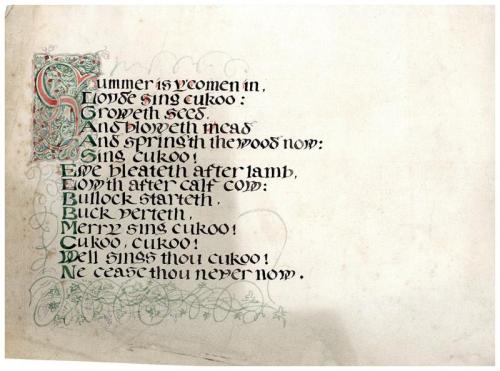 Summer is ycomen in,
Loude sing cukoo:
Groweth seed,
And bloweth mead
And spring'th the wood now:
Sing cukoo!
Ewe bleateth after lamb,
Lowth after calf cow:
Bullock starteth,
Buck verteth,
Merry sing cukoo!
Cukoo, cukoo!
Well sings thou cukoo!
Ne cease thou never now.